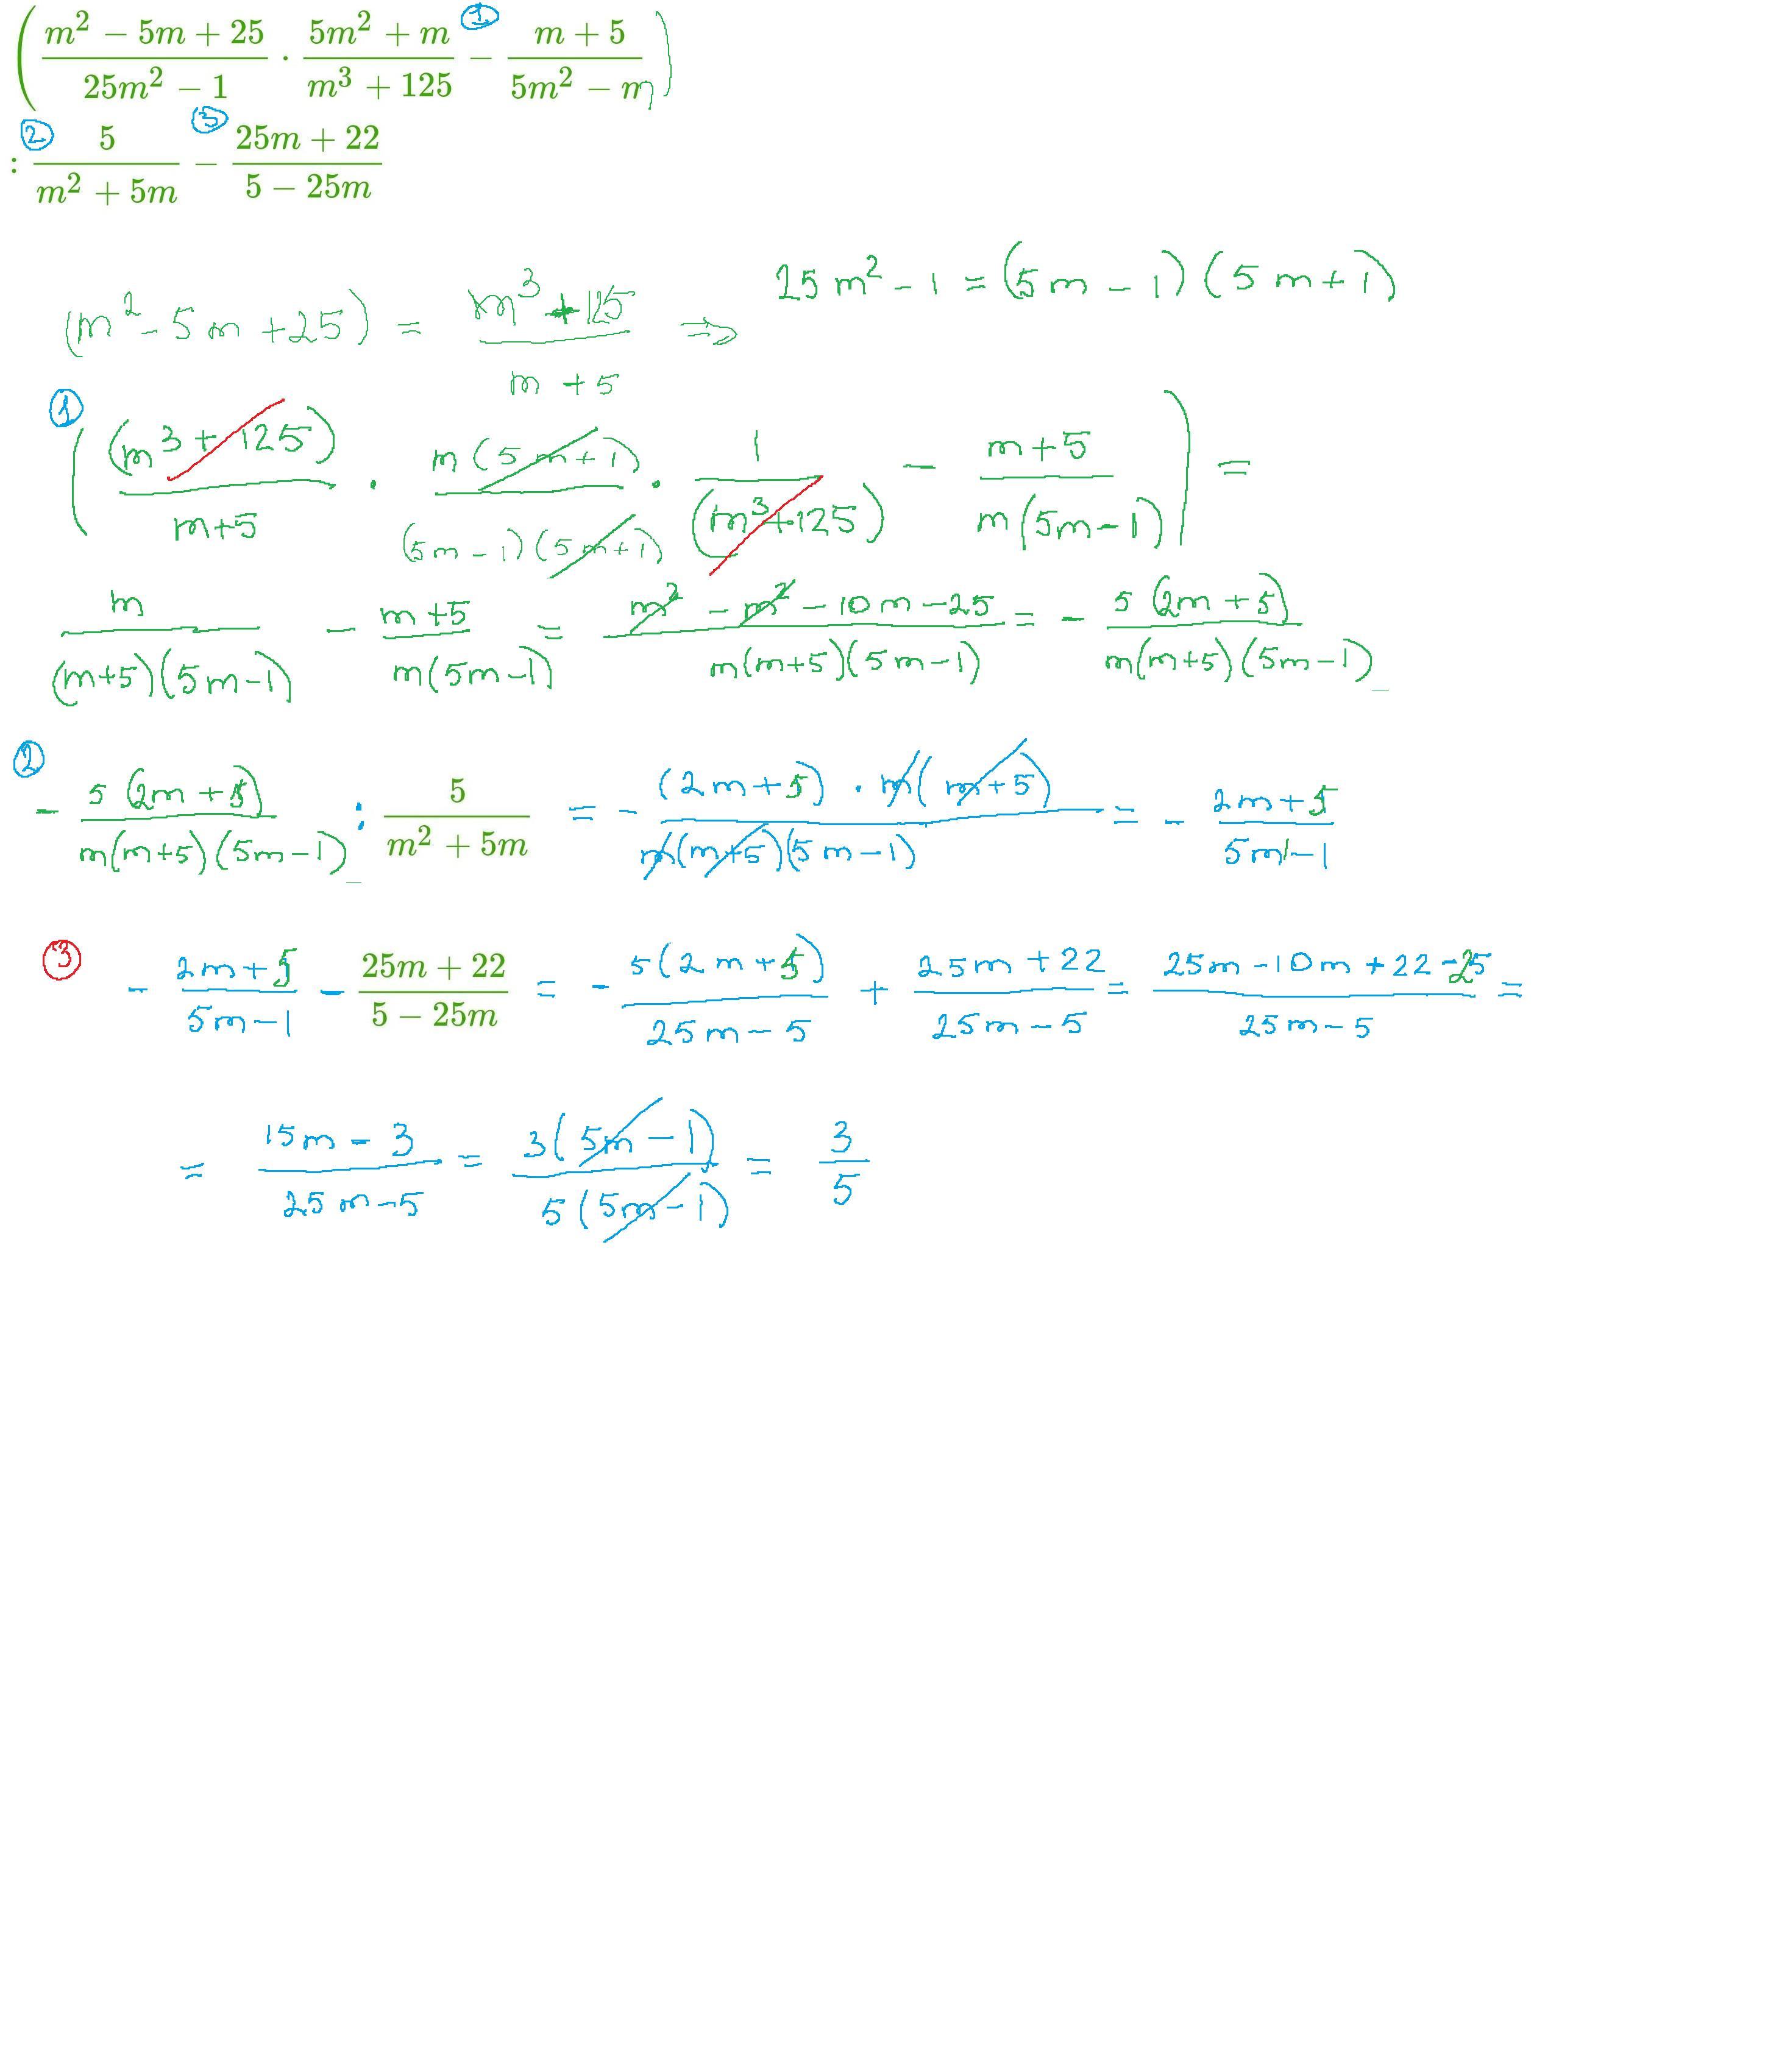 ( (m² − 5m + 25)/(25m² − 1) · (5m² + m)/(m³ + 125) ① − (m + 5)/(5m² − m) )
: ② 5/(m² + 5m) ③ − (25m + 22)/(5 − 25m)
(m² − 5m + 25) = (m³ + 125)/(m + 5) ⇒ 25m² − 1 = (5m − 1)(5m + 1)
① ( (m³ + 125)/(m+5) · m(5m+1)/((5m−1)(5m+1)) · 1/(m³+125) − (m+5)/(m(5m−1)) ) =
m/((m+5)(5m−1)) − (m+5)/(m(5m−1)) = (m² − m² − 10m − 25)/(m(m+5)(5m−1)) = − 5(2m+5)/(m(m+5)(5m−1))
② − 5(2m+5)/(m(m+5)(5m−1)) : 5/(m² + 5m) = − (2m+5) · m(m+5)/(m(m+5)(5m−1)) = − (2m+5)/(5m−1)
③ − (2m+5)/(5m−1) − (25m + 22)/(5 − 25m) = − 5(2m+5)/(25m−5) + (25m+22)/(25m−5) = (25m−10m+22−25)/(25m−5) =
= (15m − 3)/(25m−5) = 3(5m−1)/(5(5m−1)) = 3/5